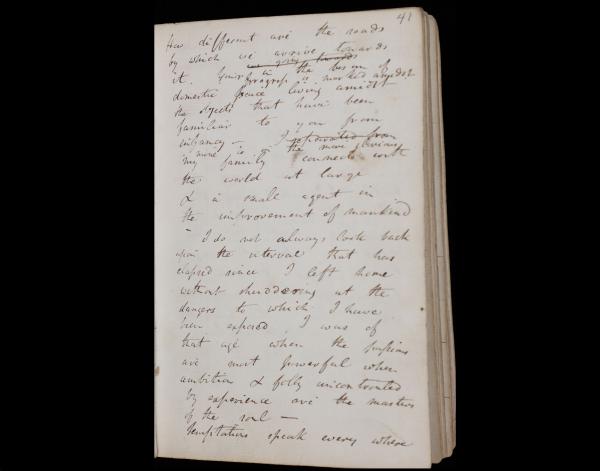 41
How different are the roads
by which we arrive towards
we going towards
it. Yours in the bosom of
progress is marked amidst
domestic peace living amidst
the objects that have been
familiar to you from
infancy — I separated from
mine is the more glorious
my family connects with
the world at large
& a small agent in
the improvement of mankind
—
I do not always look back
upon the interval that has
elapsed since I left home
without shuddering at the
dangers to which I have
been exposed I was of
that age when the passions
are most powerful when
ambition & folly uncontrouled
by experience are the masters
of the soul —
Temptations speak every where